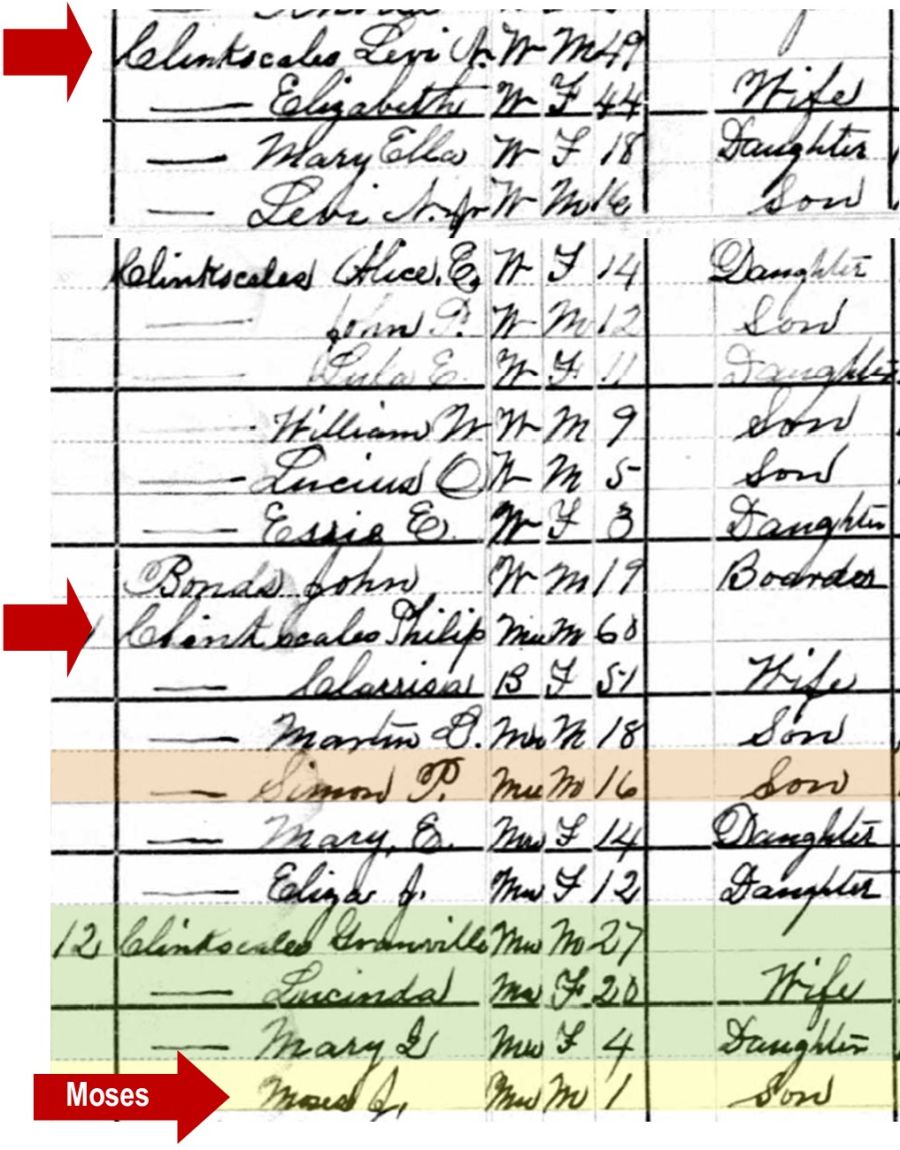 Clinkscales Levi N. W M 49
— Elizabeth W F 44 Wife
— Mary Ella W F 18 Daughter
— Levi N. Jr W M 16 Son
Clinkscales Alice. E. W F 14 Daughter
— John P. W M 12 Son
— Lula E. W F 11 Daughter
— William W W M 9 Son
— Lucius O W M 5 Son
— Essie E. W F 3 Daughter
Bonds John W M 19 Boarder
Clinkscales Philip Mu M 60
— Clarrisa B F 51 Wife
— Martin D. Mu M 18 Son
— Simon P. Mu M 16 Son
— Mary, E. Mu F 14 Daughter
— Eliza J. Mu F 12 Daughter
12 Clinkscales Granville Mu M 27
— Lucinda Mu F 20 Wife
— Mary Mu F 4 Daughter
Moses Moses J. Mu M 1 Son